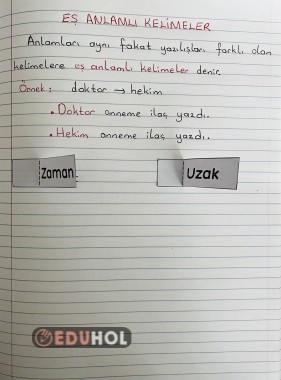 EŞ ANLAMLI KELİMELER
Anlamları aynı fakat yazılışları farklı olan
kelimelere eş anlamlı kelimeler denir.
Örnek: doktor → hekim
• Doktor anneme ilaç yazdı.
• Hekim anneme ilaç yazdı.
Zaman Uzak
EDUHOL